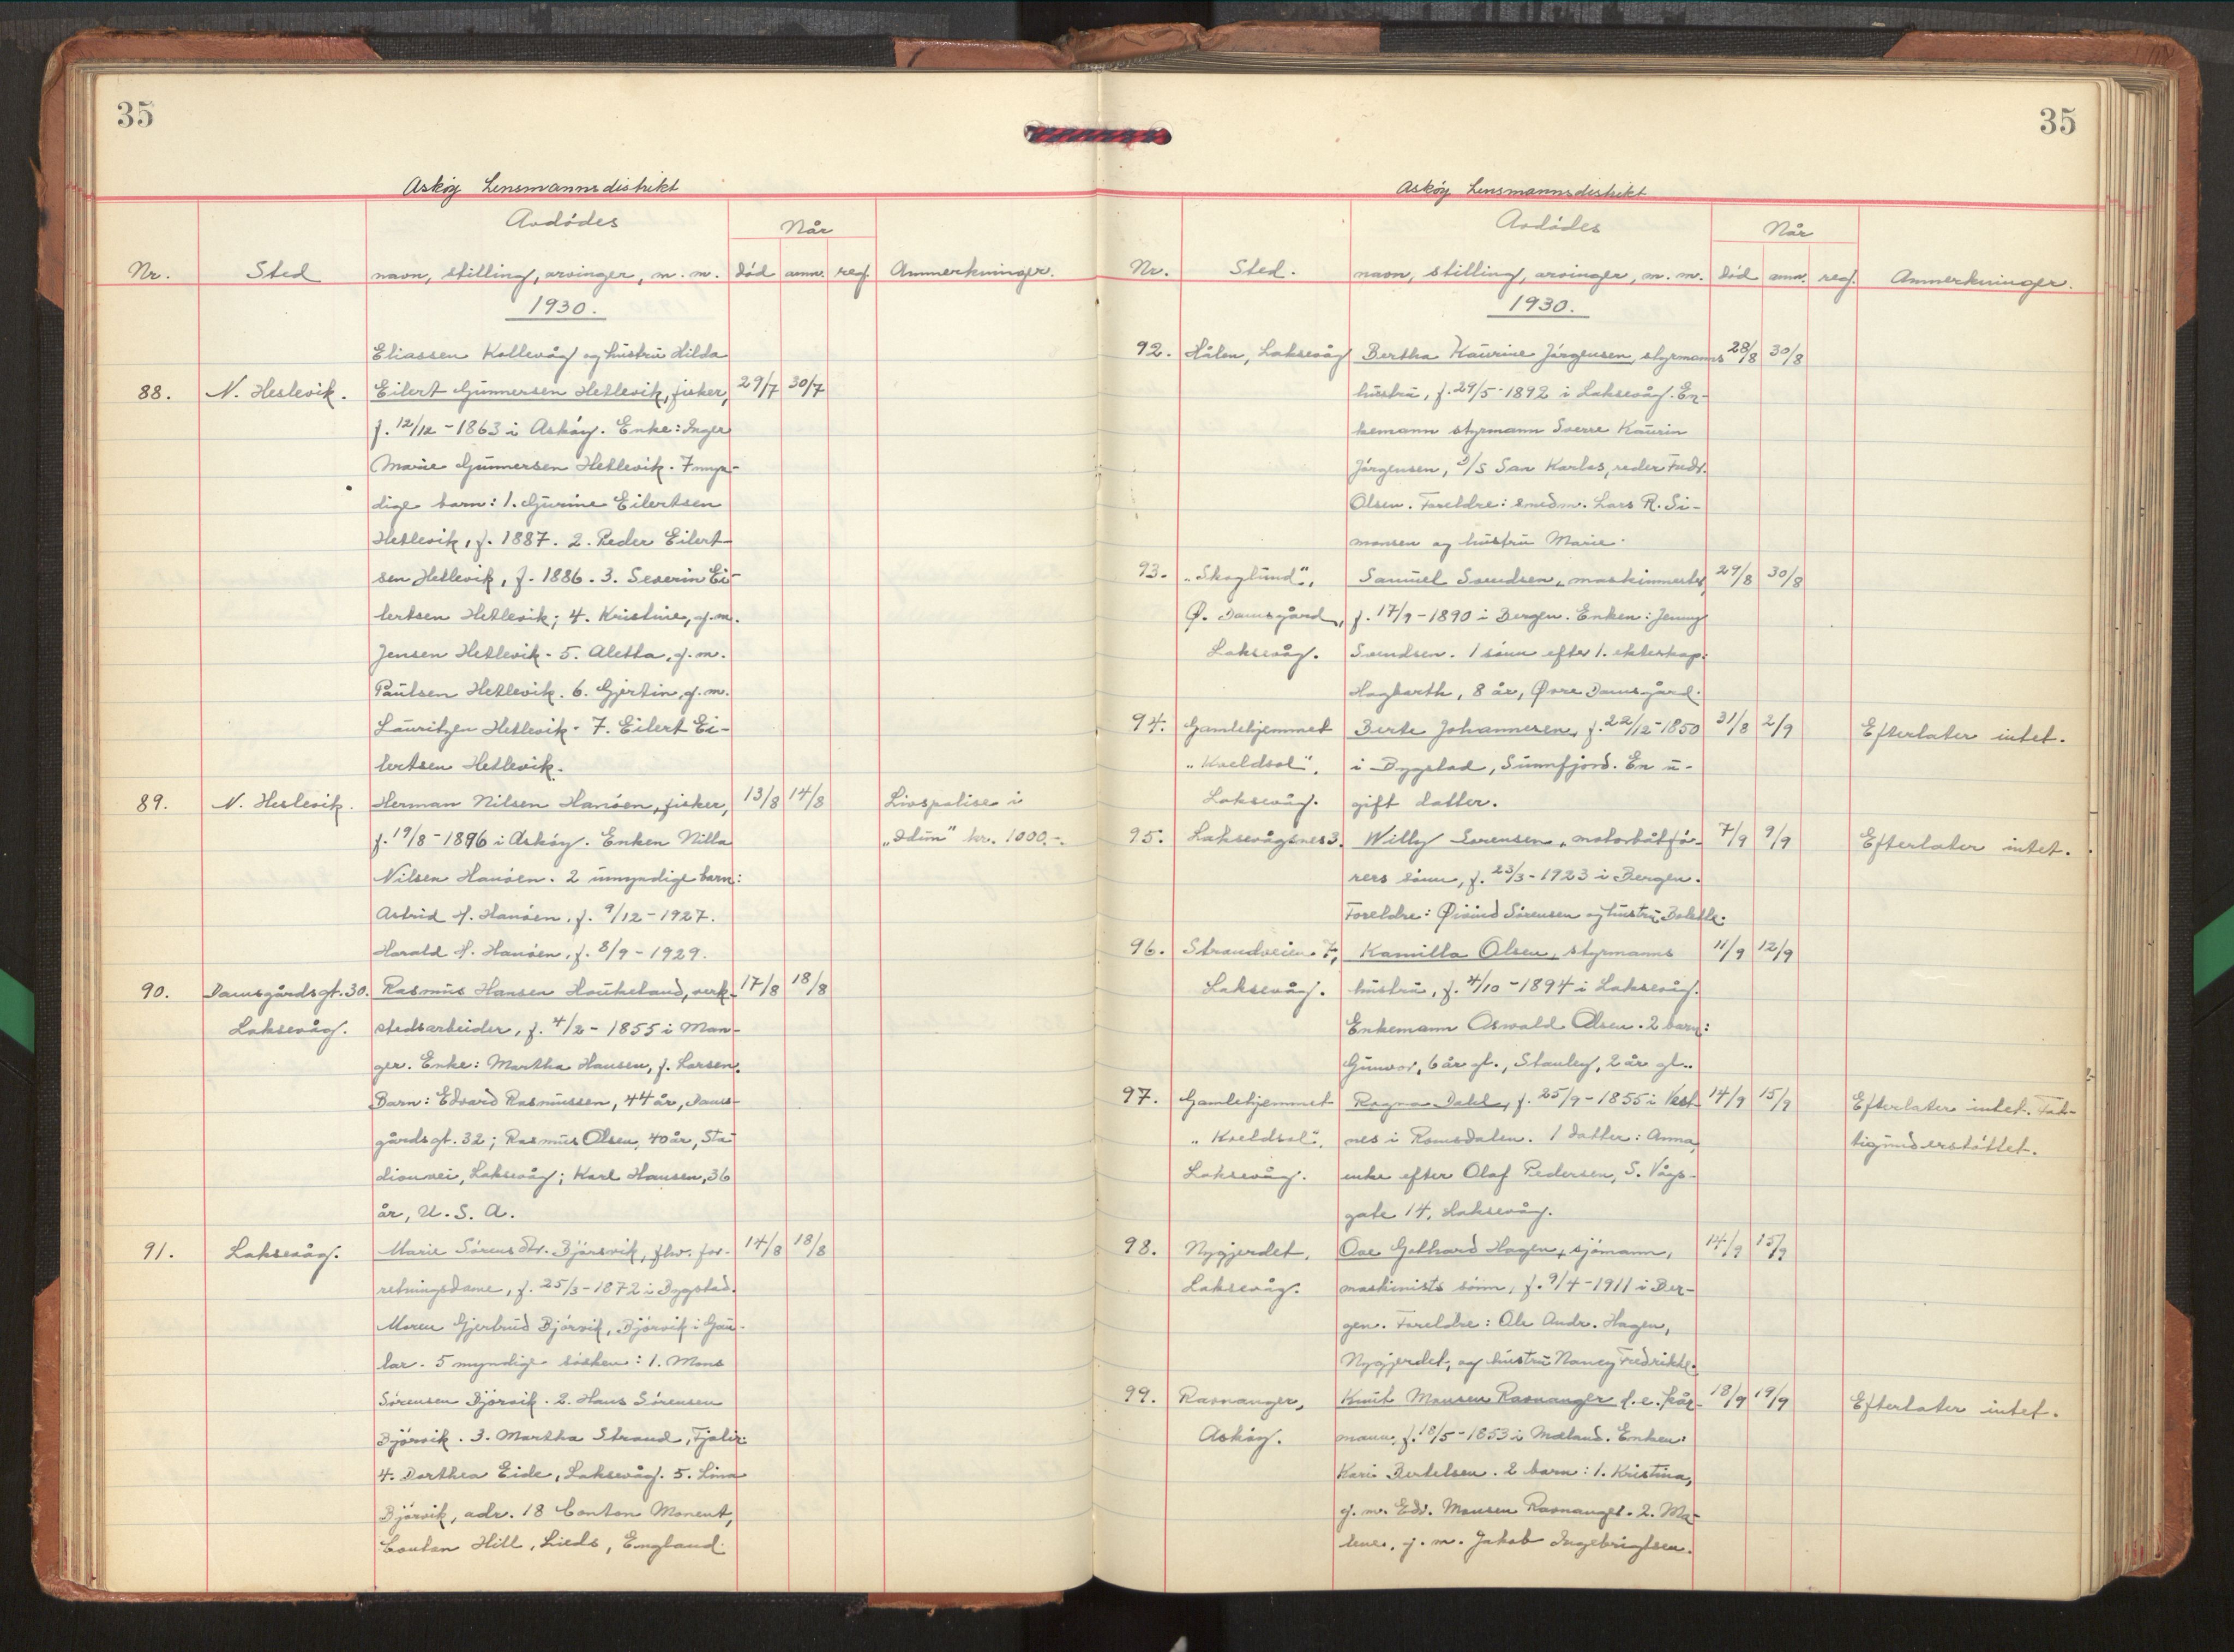 35
Askøy Lensmannsdistrikt
Avdødes
Når
Nr.
Sted
navn, stilling, arvinger, m. m.
død
anm.
reg.
Anmerkninger.
1930.
Eliassen Kollevåg og hustru Hilda
88. N. Hetlevik. Eilert Gunnersen Hetlevik, fisker, 29/7 30/7
f. 12/12 - 1863 i Askøy. Enke: Inger
Marie Gunnersen Hetlevik. 7 myn-
dige barn: 1. Gurine Eilertsen
Hetlevik, f. 1887. 2. Peder Eilert-
sen Hetlevik, f. 1886. 3. Severin Ei-
lertsen Hetlevik; 4. Kristine, g. m.
Jensen Hetlevik. 5. Aletta, g. m.
Paulsen Hetlevik. 6. Gjertin, g. m.
Lauritzen Hetlevik. 7. Eilert Ei-
lertsen Hetlevik.
89. N. Hetlevik. Herman Nilsen Hanøen, fisker, 13/8 14/8 Livspolise i
f. 19/8 - 1896 i Askøy. Enken Nilla „Idun" kr. 1000.-
Nilsen Hanøen. 2 umyndige barn:
Astrid H. Hanøen, f. 9/12 - 1927.
Harald H. Hanøen, f. 8/9 - 1929.
90. Damsgårdsgt. 30. Rasmus Hansen Haukeland, verk- 17/8 18/8
Laksevåg. stedsarbeider, f. 4/2 - 1855 i Man-
ger. Enke: Martha Hansen, f. Larsen.
Barn: Edvard Rasmussen, 44 år, Dams-
gårdsgt. 32; Rasmus Olsen, 40 år, Sta-
dionvei, Laksevåg; Karl Hansen, 36
år, U. S. A.
91. Laksevåg. Marie Sørensdtr. Bjørvik, fhv. for- 14/8 18/8
retningsdame, f. 25/3 - 1872 i Bygstad.
Moren Gjertrud Bjørvik, Bjørvik i Gau-
lar. 5 myndige søsken: 1. Mons
Sørensen Bjørvik. 2. Hans Sørensen
Bjørvik. 3. Martha Strand, Fjaler.
4. Dorthea Eide, Laksevåg. 5. Lina
Bjørvik, adr. 18 Conton Monent,
Couton Hill, Lieds, England.
35
Askøy Lensmannsdistrikt
Avdødes
Når
Nr.
Sted.
navn, stilling, arvinger, m. m.
død
anm.
reg.
Anmerkninger.
1930.
92. Hålen, Laksevåg Bertha Kaurine Jørgensen, styrmanns 28/8 30/8
hustru, f. 29/5 - 1892 i Laksevåg. En-
kemann styrmann Sverre Kaurin
Jørgensen, D/S San Karlos, reder Fred.
Olsen. Foreldre: smedm. Lars R. Si-
monsen og hustru Marie.
93. „Skoglund", Samuel Svendsen, maskinmester, 29/8 30/8
Ø. Damsgård, f. 17/9 - 1890 i Bergen. Enken: Jenny
Laksevåg. Svendsen. 1 sønn efter 1. ekteskap:
Hagbarth, 8 år, Øvre Damsgård.
94. Gamlehjemmet Berte Johannesen, f. 22/12 - 1850 31/8 2/9 Efterlater intet.
„Kveldsol", i Bygstad, Sunnfjord. En u-
Laksevåg. gift datter.
95. Laksevågsnes 3. Willy Sørensen, motorbåtfø- 7/9 9/9 Efterlater intet.
rers sønn, f. 23/3 - 1923 i Bergen.
Foreldre: Øivind Sørensen og hustru Bolette.
96. Strandveien 7, Kamilla Olsen, styrmanns 11/9 12/9
Laksevåg. hustru, f. 4/10 - 1894 i Laksevåg.
Enkemann Oswald Olsen. 2 barn:
Gunvor, 6 år gl., Stanley, 2 år gl..
97. Gamlehjemmet Ragna Dahl, f. 25/9 - 1855 i Vest- 14/9 15/9 Efterlater intet. Fat-
„Kveldsol", nes i Romsdalen. 1 datter: Anna, tigunderstøttet.
Laksevåg. enke efter Olaf Pedersen, S. Vågs-
gate 14, Laksevåg.
98. Nygjerdet, Ove Gothard Hagen, sjømann, 14/9 15/9
Laksevåg. maskinists sønn, f. 9/4 - 1911 i Ber-
gen. Foreldre: Ole Andr. Hagen,
Nygjerdet, og hustru Nancy Fredrikke.
99. Ravnanger, Knut Monsen Ravnanger f. e. kår- 18/9 19/9 Efterlater intet.
Askøy. mann, f. 18/5 - 1853 i Mæland. Enken:
Kari Bertelsen. 2 barn: 1. Kristina,
g. m. Edv. Monsen Ravnanger. 2. Ma-
lene, g. m. Jakob Ingebrigtsen.